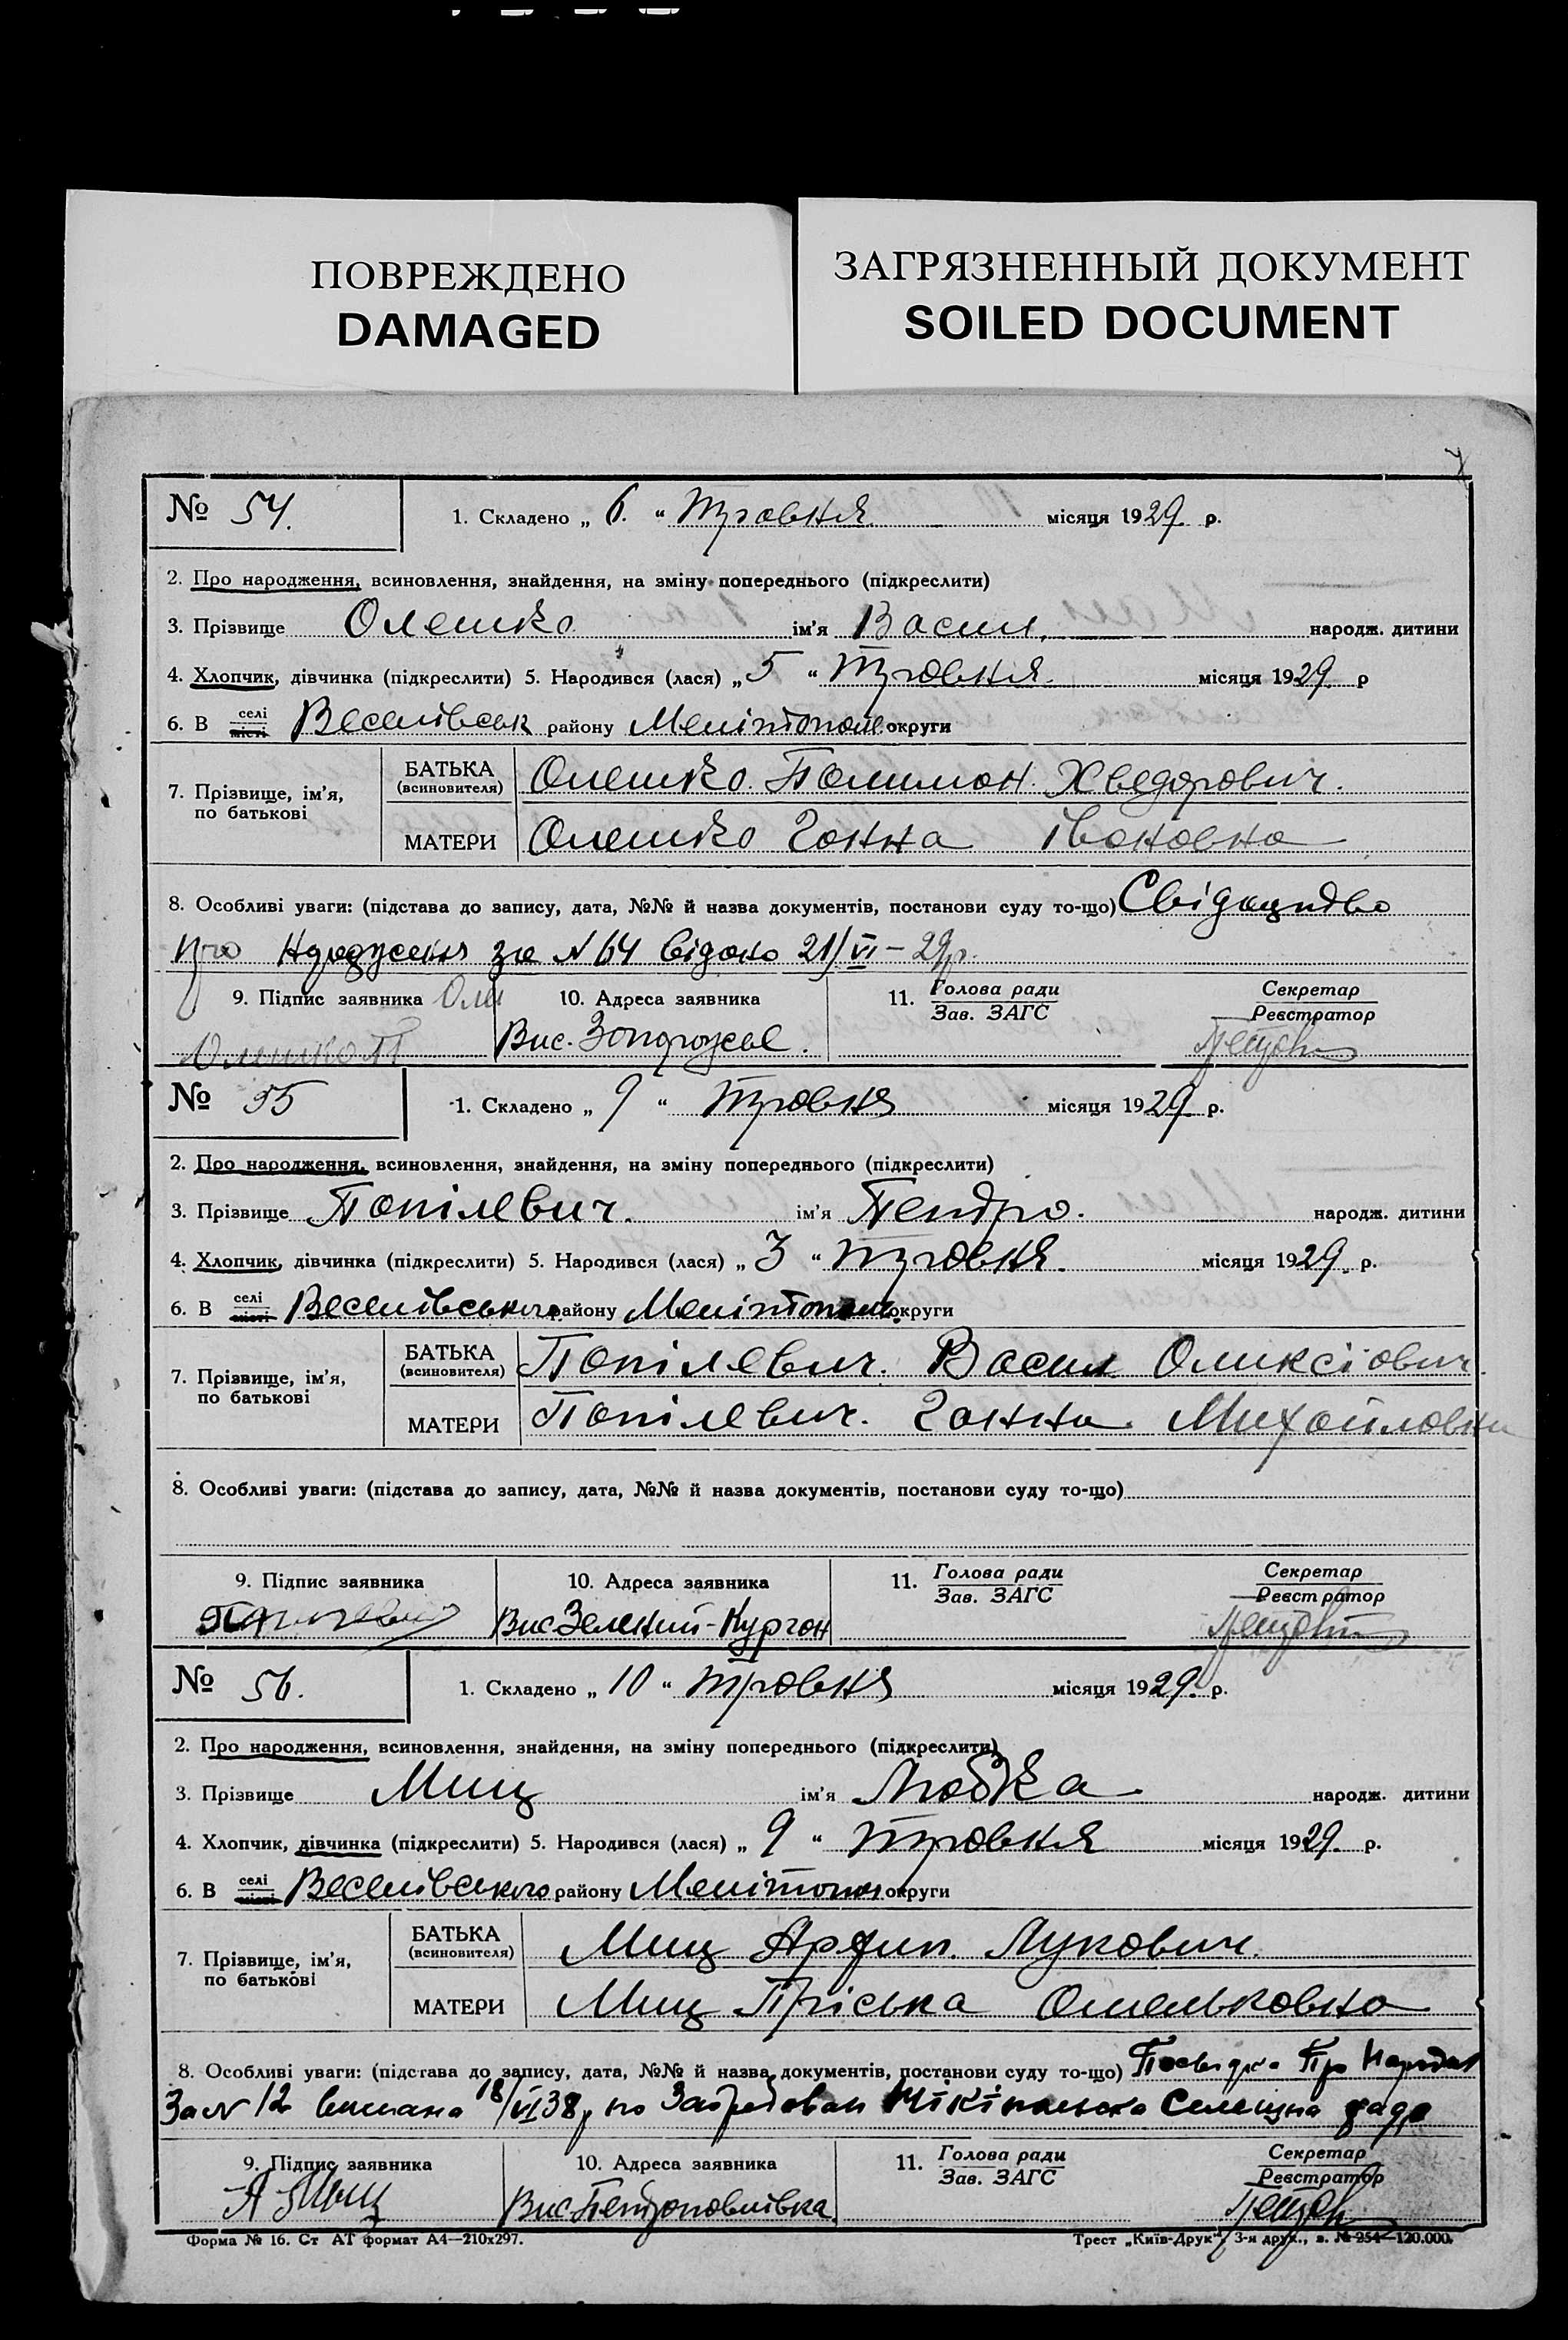 ПОВРЕЖДЕНО
DAMAGED
ЗАГРЯЗНЕННЫЙ ДОКУМЕНТ
SOILED DOCUMENT
№ 54. 1. Складено „ 6. “ Травня місяця 1929. р.
2. Про народження, всиновлення, знайдення, на зміну попереднього (підкреслити)
3. Прізвище Олешко ім'я Васил. народж. дитини
4. Хлопчик, дівчинка (підкреслити) 5. Народився (лася) „ 5 “ Травня. місяця 1929. р
6. В селі місті Веселівськ району Мелітопол. округи
7. Прізвище, ім'я, по батькові
БАТЬКА (всиновителя) Олешко. Полимон. Хведорович.
МАТЕРИ Олешко Ганна Івановна
8. Особливі уваги: (підстава до запису, дата, №№ й назва документів, постанови суду то-що) Свідоцтво
про народження за N 64 відано 21/VI - 29р.
9. Підпис заявника 10. Адреса заявника 11. Голова ради Зав. ЗАГС Секретар Реєстратор
Олешко П Вис. Запорожье.
№ 55 1. Складено „ 9 “ Травня місяця 1929. р.
2. Про народження, всиновлення, знайдення, на зміну попереднього (підкреслити)
3. Прізвище Попілевич. ім'я Пентро. народж. дитини
4. Хлопчик, дівчинка (підкреслити) 5. Народився (лася) „ 3 “ Травня. місяця 1929. р.
6. В селі місті Веселівського району Мелітопол. округи
7. Прізвище, ім'я, по батькові
БАТЬКА (всиновителя) Попілевич. Васил Оликсіович.
МАТЕРИ Попілевич. Ганна Михайловна
8. Особливі уваги: (підстава до запису, дата, №№ й назва документів, постанови суду то-що)
9. Підпис заявника 10. Адреса заявника 11. Голова ради Зав. ЗАГС Секретар Реєстратор
Вис. Зелений-Курган
№ 56. 1. Складено „ 10 “ травня місяця 1929. р.
2. Про народження, всиновлення, знайдення, на зміну попереднього (підкреслити)
3. Прізвище Миц ім'я Любка народж. дитини
4. Хлопчик, дівчинка (підкреслити) 5. Народився (лася) „ 9 “ Травня місяця 1929. р.
6. В селі місті Веселівського району Мелітопол округи
7. Прізвище, ім'я, по батькові
БАТЬКА (всиновителя) Миц Архип. Лукович.
МАТЕРИ Миц Пріська Омельковна
8. Особливі уваги: (підстава до запису, дата, №№ й назва документів, постанови суду то-що) Про Народж
За N 12 видана 18/VI 38р Селищна рада
9. Підпис заявника 10. Адреса заявника 11. Голова ради Зав. ЗАГС Секретар Реєстратор
А Миц Вис.
Форма № 16. Ст АТ формат А4—210х297. Трест „Київ-Друк“, 3-я друк., в. № 254—120.000.